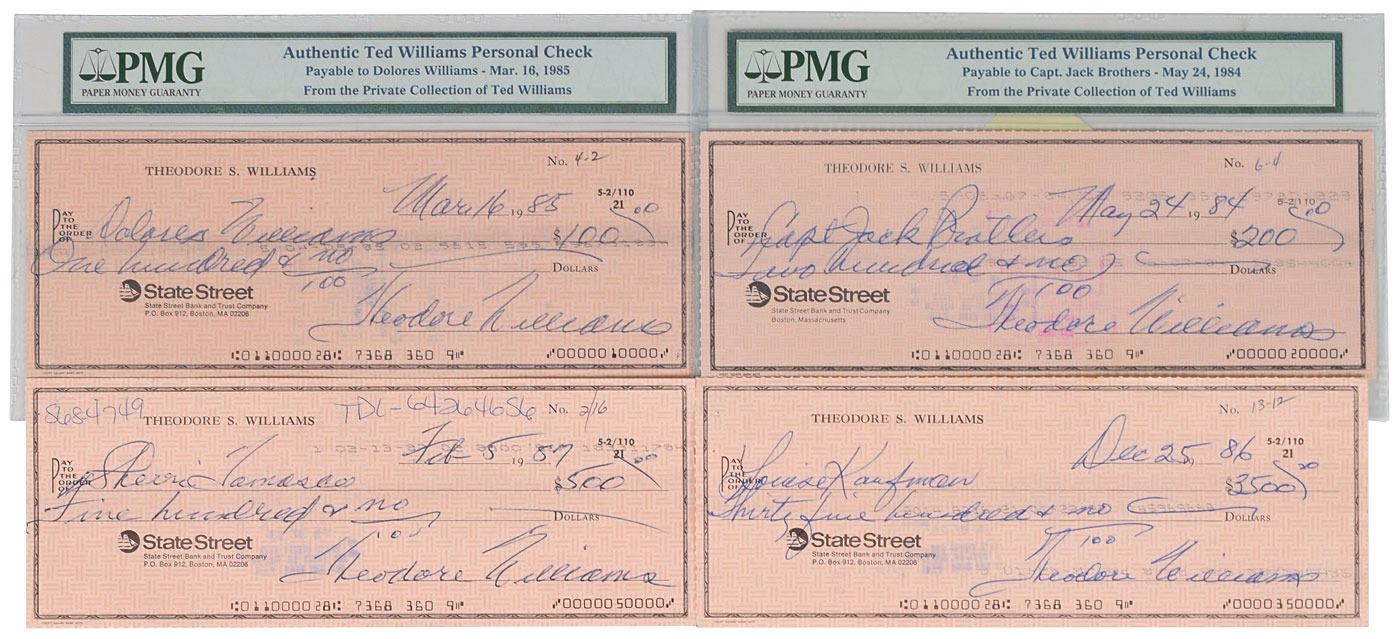 PMG
PAPER MONEY GUARANTY
Authentic Ted Williams Personal Check
Payable to Dolores Williams - Mar. 16, 1985
From the Private Collection of Ted Williams
PMG
PAPER MONEY GUARANTY
Authentic Ted Williams Personal Check
Payable to Capt. Jack Brothers - May 24, 1984
From the Private Collection of Ted Williams
THEODORE S. WILLIAMS
No. 4-2
Mar 16 1985
5-2/110
21
PAY TO THE ORDER OF Dolores Williams $100.00
One hundred & no/100 DOLLARS
State Street
State Street Bank and Trust Company
P.O. Box 912, Boston, MA 02206
Theodore Williams
⑆011000028⑆ 7368 360 9⑈ ⑈0000010000⑈
THEODORE S. WILLIAMS
No. 6-4
May 24 1984
5-2/110
PAY TO THE ORDER OF Capt Jack Brothers $200.00
Two hundred & no/100 DOLLARS
State Street
State Street Bank and Trust Company
Boston, Massachusetts
Theodore Williams
⑆011000028⑆ 7368 360 9⑈ ⑈0000020000⑈
8684749
THEODORE S. WILLIAMS
TDL-64264656
No. 2/16
Feb 5 1987
5-2/110
21
PAY TO THE ORDER OF Sherri Tamasco $500.00
Five hundred & no/100 DOLLARS
State Street
State Street Bank and Trust Company
P.O. Box 912, Boston, MA 02206
Theodore Williams
⑆011000028⑆ 7368 360 9⑈ ⑈0000050000⑈
THEODORE S. WILLIAMS
No. 13-12
Dec 25 1986
5-2/110
21
PAY TO THE ORDER OF Louise Kaufman $3500.00
Thirty five hundred & no/100 DOLLARS
State Street
State Street Bank and Trust Company
P.O. Box 912, Boston, MA 02206
Theodore Williams
⑆011000028⑆ 7368 360 9⑈ ⑈0000350000⑈